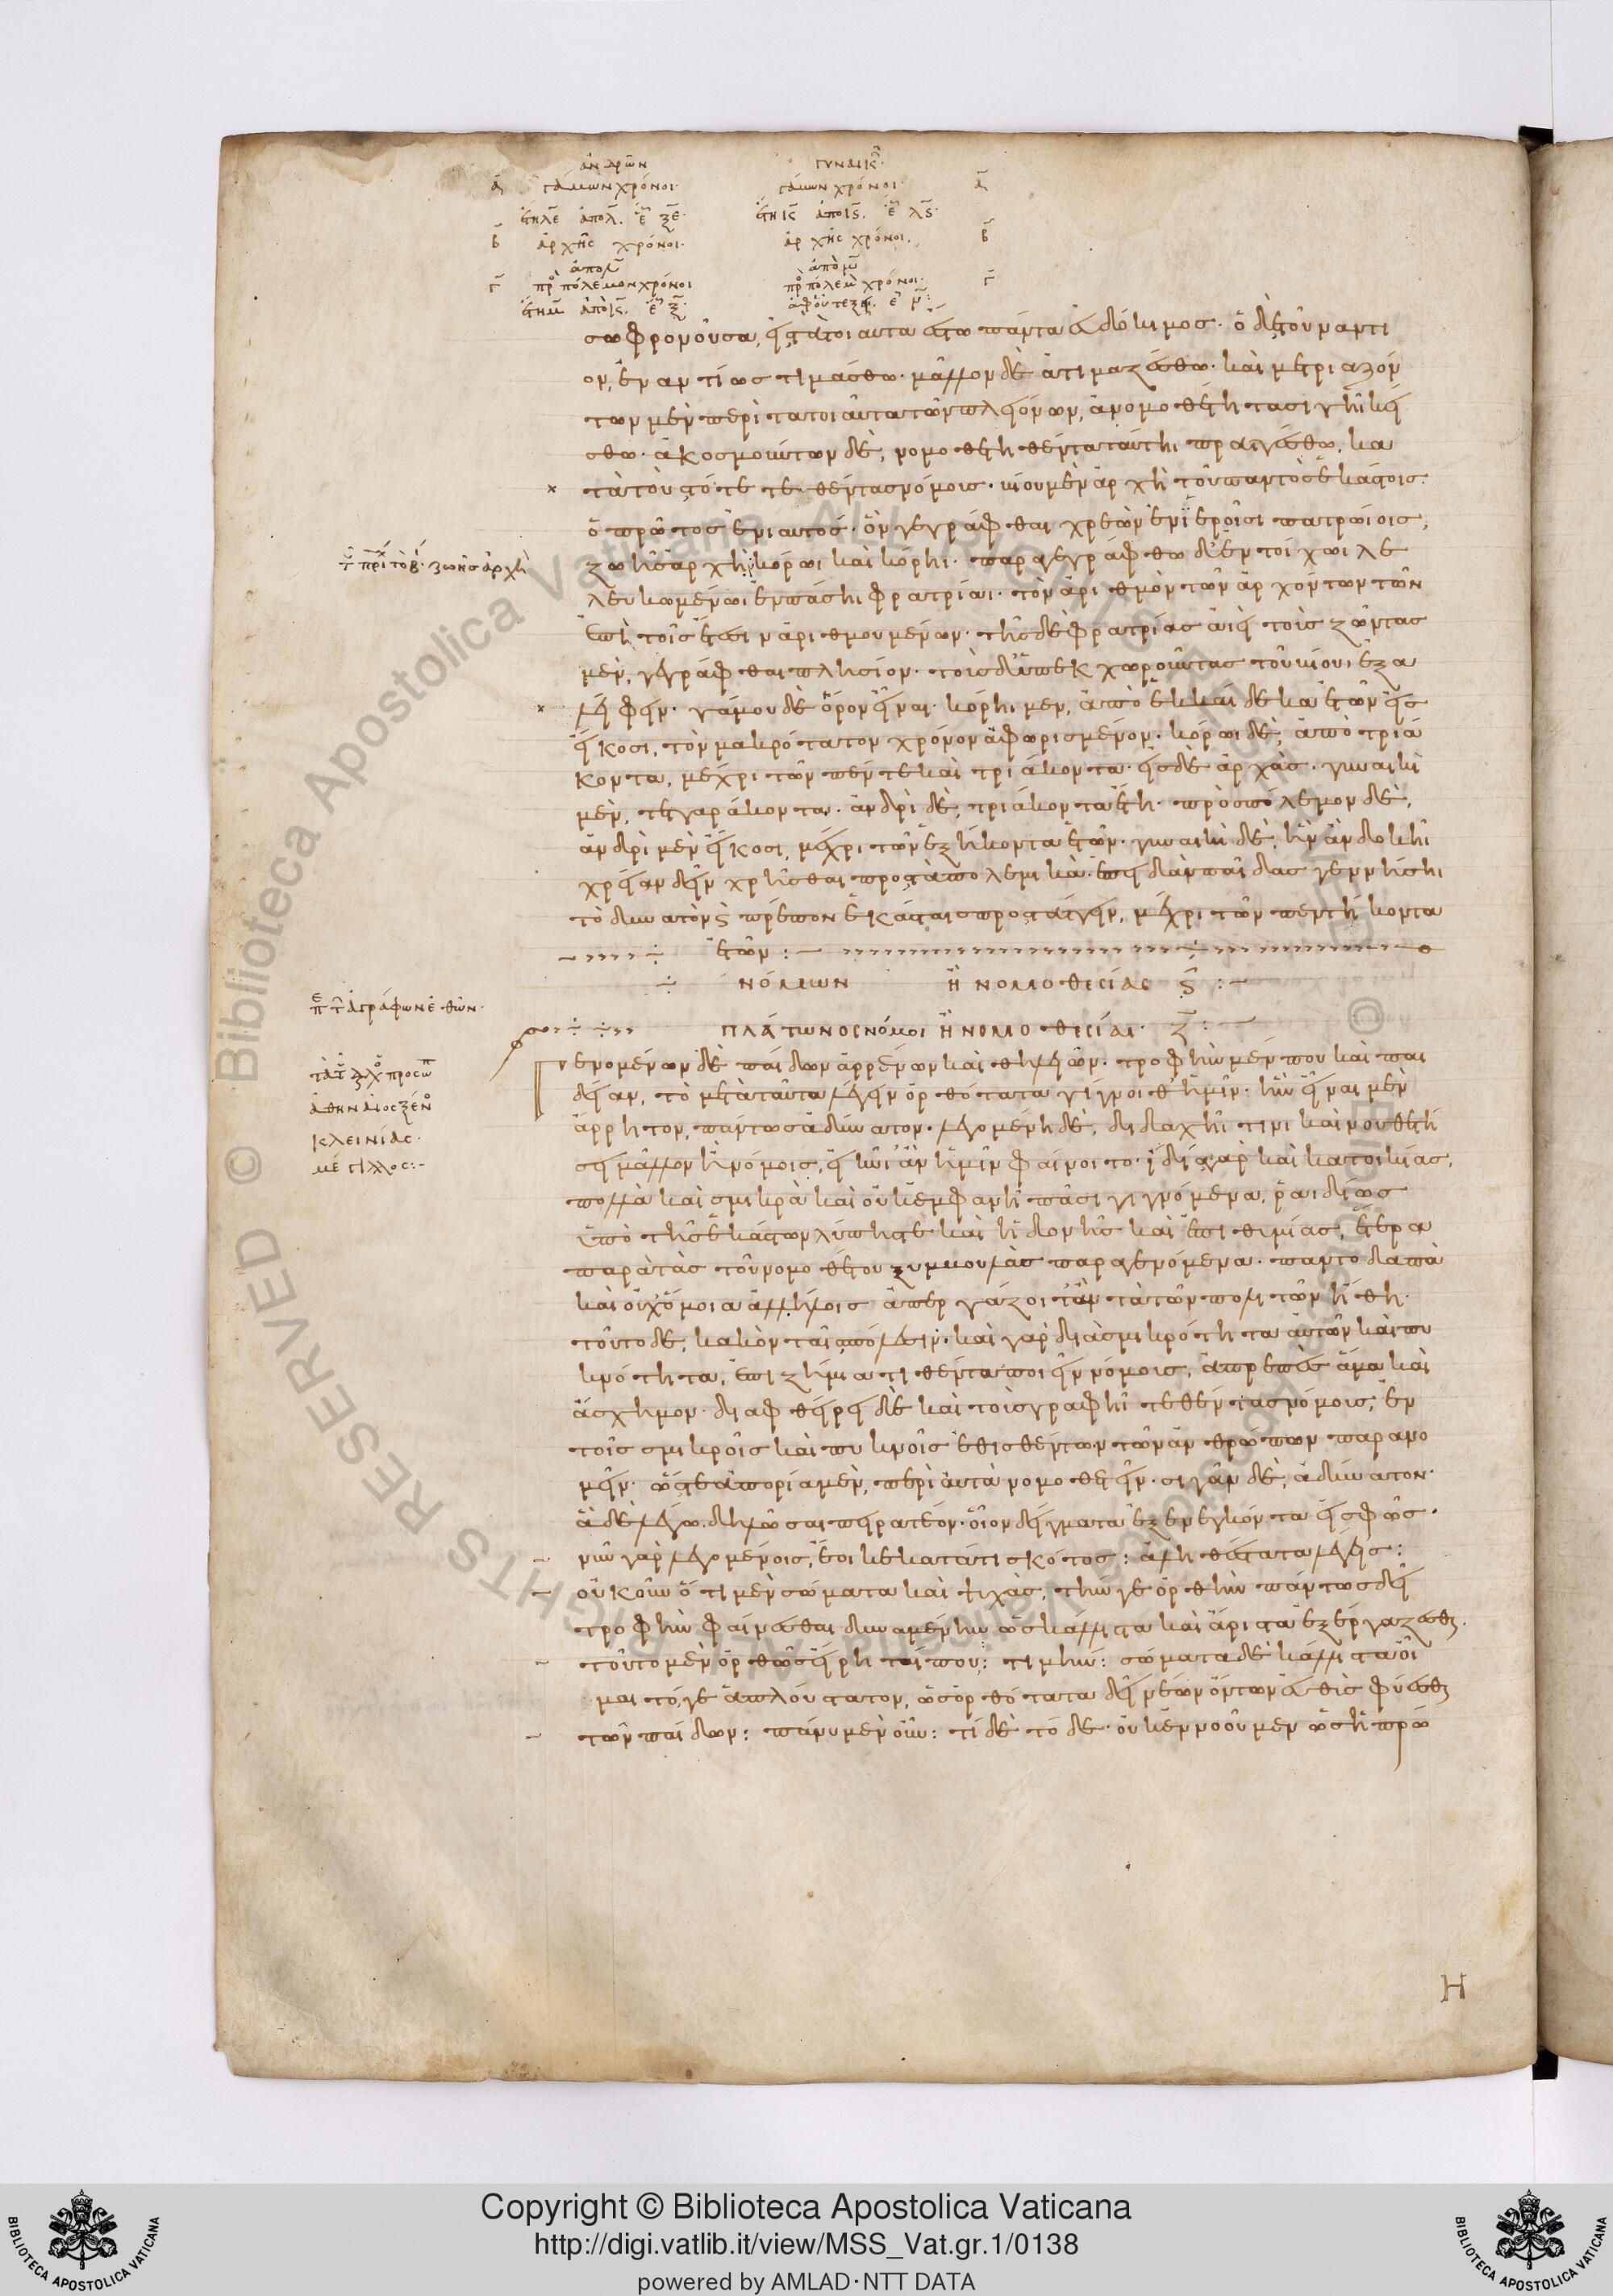 ἀνδρῶν γυναικῶν
ᾱ γάμων χρόνοι· γάμων χρόνοι· ᾱ
β̄ ἀρχῆς χρόνοι· ἀρχῆς χρόνοι· β̄
ἀπὸ μ̄
γ̄ πρὸ πόλεμον χρόνοι πρὸ πόλεμον χρόνοι· γ̄
σωφρονοῦσα, εἰς τὰ τοιαῦτα ἔστω πάντα εὐδόκιμος· ὁ δὲ τοὐναντί
ον, ἐναντίως τιμάσθω· μᾶλλον δὲ ἀτιμαζέσθω· καὶ μετριαζόν
των μὲν περὶ τὰ τοιαῦτα τῶν πλειόνων, ἀνομοθέτητα σιγῆι κεί
σθω· ἀκοσμούντων δὲ, νομοθετηθέντα ταύτηι πραττέσθω, κα
τὰ τοὺς τότε τεθέντας νόμους· βίου μὲν ἀρχὴ τοῦ παντὸς ἑκάστοις
ὁ πρῶτος ἐνιαυτός· ὃν γεγράφθαι χρεὼν ἐν ἱεροῖσι πατρώιοις,
ζωῆς ἀρχὴ κόρωι καὶ κόρηι· παραγεγράφθω δ' ἐν τοίχωι λε
λευκωμένωι ἐν πάσηι φρατρίαι· τὸν ἀριθμὸν τῶν ἀρχόντων τῶν
ἐπὶ τοῖς ἔτεσιν ἀριθμουμένων· τῆς δὲ φρατρίας ἀεὶ τοὺς ζῶντας
μὲν, γεγράφθαι πλησίον· τοὺς δ' ὑπεκχωροῦντας τοῦ βίου, ἐξα
λείφειν· γάμου δὲ ὅρον εἶναι· κόρηι μὲν, ἀπὸ ἑκκαίδεκα ἐτῶν εἰς
εἴκοσι, τὸν μακρότατον χρόνον ἀφωρισμένον· κόρωι δὲ, ἀπὸ τριά
κοντα, μέχρι τῶν πέντε καὶ τριάκοντα· εἰς δὲ ἀρχὰς· γυναικὶ
μὲν, τετταράκοντα· ἀνδρὶ δὲ, τριάκοντα ἔτη· πρὸς πόλεμον δὲ,
ἀνδρὶ μὲν εἴκοσι, μέχρι τῶν ἑξήκοντα ἐτῶν· γυναικὶ δὲ, ἣν ἂν δοκῆι
χρείαν δεῖν χρῆσθαι πρὸς τὰ πολεμικὰ· ἐπειδὰν παῖδας γεννήσηι
τὸ δυνατὸν καὶ πρέπον ἑκάσταις προστάττειν, μέχρι τῶν πεντήκοντα
ἐτῶν :
ΝΟΜΩΝ Ἢ ΝΟΜΟΘΕΣΙΑΣ Ϛ :
ΠΛΑΤΩΝΟΣ νόμοι Ἢ ΝΟΜΟθΕΣΙΑΙ· Ζ̄ :
Γενομένων δὲ παίδων ἀρρένων καὶ θηλειῶν· τροφὴν μέν που καὶ παι
δείαν, τὸ μετὰ ταῦτα λέγειν ὀρθότατα γίγνοιθ' ἡμῖν· ἣν εἶναι μὲν
ἄρρητον, πάντως ἀδύνατον· λεγομένη δὲ, διδαχῆι τινι καὶ νουθετή
σει μᾶλλον ἢ νόμοις, εἰκυῖ' ἂν ἡμῖν φαίνοιτο· ἰδίαι γὰρ καὶ κατοικίας,
πολλὰ καὶ σμικρὰ καὶ οὐκ ἐμφανῆ πᾶσι γιγνόμενα, ῥαιδίως
ὑπὸ τῆς ἑκάστων λύπης τε καὶ ἡδονῆς καὶ ἐπιθυμίας, ἕτερα
παρὰ τὰς τοῦ νομοθέτου ξυμβουλὰς παραγενόμενα· παντοδαπὰ
καὶ οὐχ ὅμοια ἀλλήλοις ἀπεργάζοιτ' ἂν τὰ τῶν πολιτῶν ἤθη·
τοῦτο δὲ, κακὸν ταῖς πόλεσιν· καὶ γὰρ διὰ σμικρότητα αὐτῶν καὶ πυ
κνότητα, ἐπιζήμια τιθέντα ποιεῖν νόμοις, ἀπρεπὲς ἅμα καὶ
ἄσχημον· διαφθείρει δὲ καὶ τοὺς γραφῆι τεθέντας νόμους, ἐν
τοῖς σμικροῖς καὶ πυκνοῖς ἐθισθέντων τῶν ἀνθρώπων παρανο
μεῖν· ὥστε ἀπορία μὲν, περὶ αὐτὰ νομοθετεῖν· σιγᾶν δὲ, ἀδύνατον·
ἃ δὲ λέγω, δηλῶσαι πειρατέον· οἷον δείγματα ἐξενεγκόντα εἰς φῶς·
νῦν γὰρ λεγομένοις, ἔοικε κατά τι σκότος : ἀληθέστατα λέγεις :
οὐκοῦν ὅτι μὲν σώματα καὶ ψυχὰς, τήν γε ὀρθὴν πάντως δεῖ
τροφὴν φαίνεσθαι δυναμένην ὡς κάλλιστα καὶ ἄριστα ἐξεργάζεσθαι·
τοῦτο μὲν ὀρθῶς εἴρηταί που : τί μήν : σώματα δὲ κάλλιστα οἶ
μαι τό γε ἁπλούστατον, ὡς ὀρθότατα δεῖ νέων ὄντων εὐθὺς φύεσθαι
τῶν παίδων : πάνυ μὲν οὖν : τί δὲ τόδε· οὐκ ἐννοοῦμεν ὡς ἡ πρώ
ζωῆς ἀρχὴ
ἀγράφων ἐθῶν·
ἀθηναῖος ξένος
κλεινίας·
μέγιλλος :-
Η
Copyright © Biblioteca Apostolica Vaticana
http://digi.vatlib.it/view/MSS_Vat.gr.1/0138
powered by AMLAD·NTT DATA